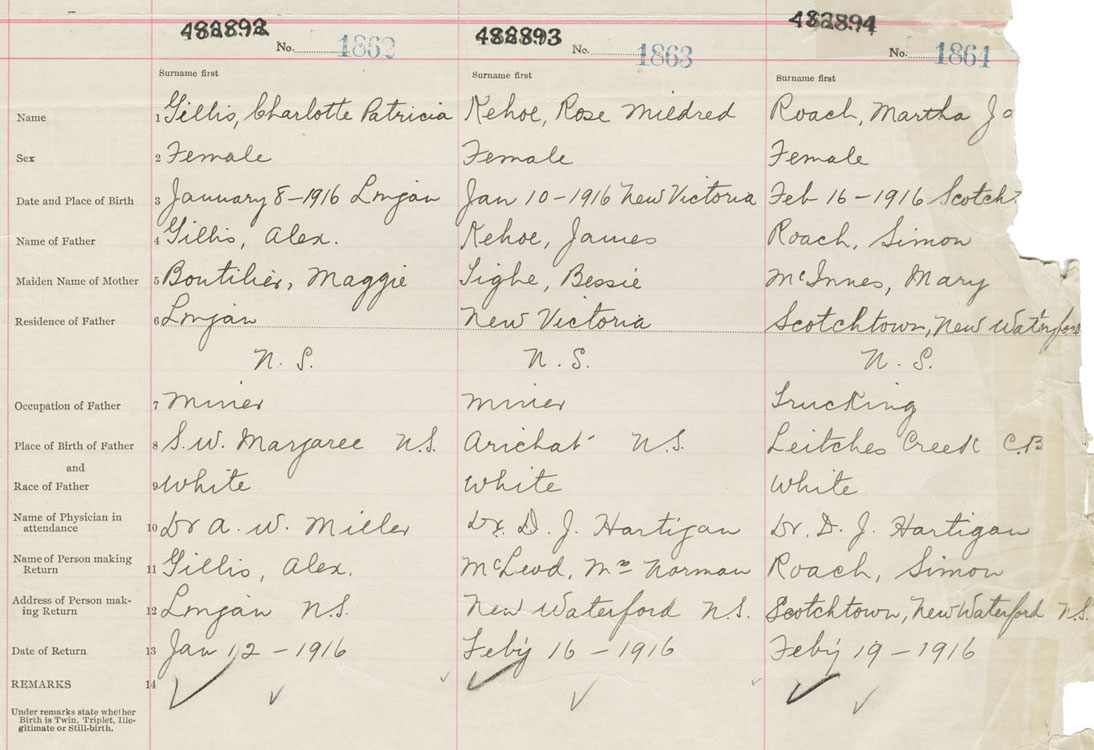 482892 482893 482894
No. 1862 No. 1863 No. 1864
Surname first Surname first Surname first
Name 1 Gillis, Charlotte Patricia Kehoe, Rose Mildred Roach, Martha
Sex 2 Female Female Female
Date and Place of Birth 3 January 8-1916 Lingan Jan 10-1916 New Victoria Feb 16-1916 Scotch
Name of Father 4 Gillis, Alex. Kehoe, James Roach, Simon
Maiden Name of Mother 5 Boutilier, Maggie Tighe, Bessie McInnes, Mary
Residence of Father 6 Lingan New Victoria Scotchtown, New Waterford
N. S. N. S. N. S.
Occupation of Father 7 Miner Miner Trucking
Place of Birth of Father 8 S. W. Margaree N.S. Arichat N.S. Leitches Creek C.B
and
Race of Father 9 White White White
Name of Physician in
attendance 10 Dr A. W. Miller Dr. D. J. Hartigan Dr. D. J. Hartigan
Name of Person making
Return 11 Gillis, Alex. McLeod, Mrs Norman Roach, Simon
Address of Person mak-
ing Return 12 Lingan N.S. New Waterford N.S. Scotchtown, New Waterford N.S.
Date of Return 13 Jan 12-1916 Feby 16-1916 Feby 19-1916
REMARKS 14
Under remarks state whether
Birth is Twin, Triplet, Ille-
gitimate or Still-birth.